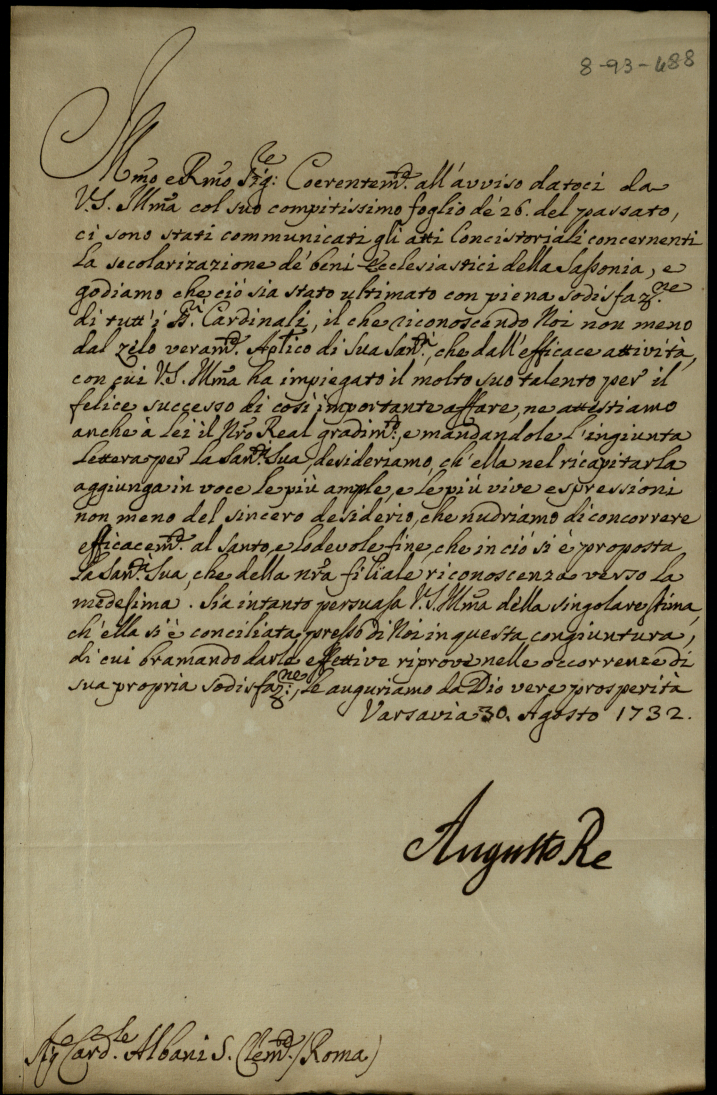 8-93-488
Illmo e Rmo Sig:re Coerentemte. all'avviso datoci da
V.S. Illma col suo compitissimo foglio de' 26. del passato,
ci sono stati communicati gli atti Concistoriali concernenti
la secolarizazione de' beni Ecclesiastici della Sassonia, e
godiamo che ciò sia stato ultimato con piena sodisfaz:ne
di tutt'i Cardinali, il che riconoscendo Noi non meno
dal zelo veramte. Aplico di Sua Santà., che dall'efficace attività,
con cui V.S. Illma ha impiegato il molto suo talento per il
felice successo di così importante affare, ne attestiamo
anche à lei il Nro Real gradimto., e mandandole l'ingiunta
lettera per la Santà. Sua, desideriamo, ch'ella nel ricapitarla
aggiunga in voce le più ample, e le più vive espressioni
non meno del sincero desiderio, che nudriamo di concorrere
efficacemte. al santo, e lodevole fine, che in ciò si è proposta
la Santà. Sua, che della nra filiale riconoscenza verso la
medesima. Sia intanto persuasa V.S. Illma della singolare stima,
ch'ella si è conciliata presso di Noi in questa congiuntura,
di cui bramando darle effettive riprove nelle occorrenze di
sua propria sodisfaz:ne, le auguriamo da Dio vere prosperità
Varsavia 30. Agosto 1732.
Augusto Re
Sig Card.le Albani S. Clemte. (Roma)